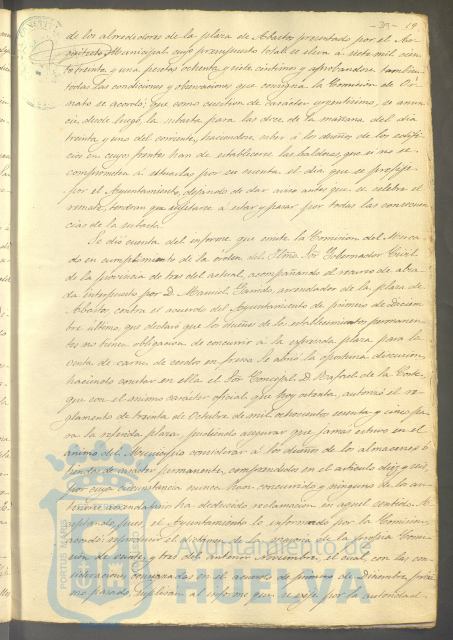 - 39 - 19
de los alrededores de la plaza de Abastos presentado por el Ar-
quitecto Municipal cuyo presupuesto total se eleva á siete mil cien-
to treinta y una pesetas ochenta y siete céntimos y aprobandose tambien
todas las condiciones y observaciones que consigna la Comisión de Or-
nato se acordó: que como cuestion de carácter urgentísimo, se anun-
cie desde luego la subasta para las doce de la mañana del día
treinta y uno del corriente, haciendose saber á los dueños de los edifi-
cios en cuyos frentes han de establecerse las baldosas, que si no se
comprometen á situarlas por su cuenta el día que se prefije
por el Ayuntamiento, dejando de dar aviso antes que se celebre el
remate, tendran que sujetarse á estar y pasar por todas las consecuen-
cias de la subasta.
Se dió cuenta del informe que emite la Comision del Merca-
do en cumplimiento de la orden del Iltmo. Sor. Gobernador Civil
de la provincia de tres del actual, acompañando el recurso de alza-
da interpuesto por D. Manuel Garrido, arrendador de la plaza de
Abastos, contra el acuerdo del Ayuntamiento de primero de Diciem-
bre último, que declaró que los dueños de los establecimientos permanen-
tes no tienen obligacion de concurrir á la referida plaza para la
venta de carnes de cerdo en fresco. Se abrió la oportuna discusion,
haciendo constar en ella el Sor. Concejal D. Rafael de la Corte,
que con el mismo carácter oficial que hoy ostenta, autorizó el re-
glamento de treinta de Octubre de mil ochocientos sesenta y cinco pa-
ra la referida plaza, pudiendo asegurar que jamas estuvo en el
ánimo del Municipio considerar á los dueños de los almacenes ó
tiendas de carácter permanente, comprendidos en el artículo diez y seis,
por cuya circunstancia nunca han concurrido y ninguno de los an-
teriores arrendatarios ha deducido reclamacion en aquel sentido. A-
ceptando pues el Ayuntamiento lo informado por la Comision,
acordó: reproducir el dictamen de la mayoria de la propia Comi-
sion de veinte y tres del anterior Noviembre, el cual, con las con-
sideraciones consignadas en el acuerdo de primero de Diciembre próxi-
mo pasado, suplirán al informe que se exije por la autoridad
PORTUS MARIS
Ayuntamiento de
HUELVA